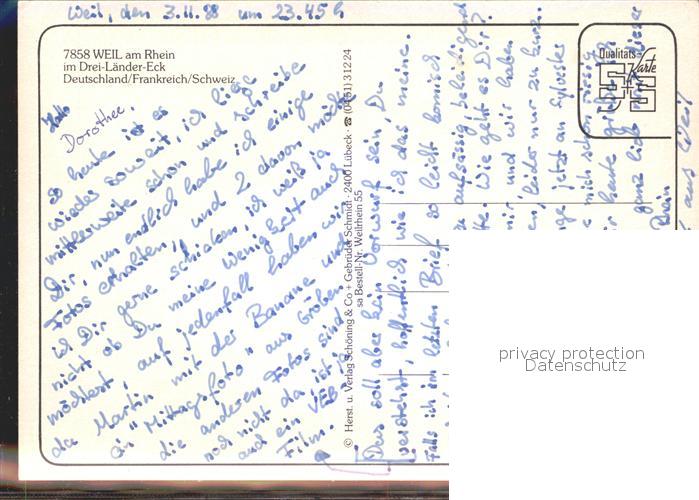 Weil, den 3.11.88 um 23.45 h
7858 WEIL am Rhein
im Drei-Länder-Eck
Deutschland/Frankreich/Schweiz
Hallo
Dorothee,
so heute ist es
wieder soweit, ich liege
mittlerweile schon und schreibe
Dir, nun endlich habe ich einige
Fotos erhalten, und 2 davon möchte
ich Dir gerne schicken, ich weiß ja
nicht ob Du meine wenigkeit auch
möchtest, auf jedenfall haben wir
da Martin mit der Banane und
ein "Mittagsfoto" aus Gröben
die anderen Fotos sind
noch nicht da ist ja
auch ein VEB
Film.
© Herst. u. Verlag Schöning & Co + Gebrüder Schmidt · 2400 Lübeck · ☎ (0451) 3 12 24
sa Bestell-Nr. Weilrhein 55
Das soll aber kein Vorwurf sein, Du
verstehst, hoffentlich wie ich das meine.
Falls ich im letzten Brief so leicht komisch
aufsässig beleidigend
tte. Wie geht es Dir?
mir, und wir haben
en, leider nur zu kurz.
ge jetzt an Sylvester
mich schon riesig
heute
ganz lieb dieser
Rhein
aus Weil
Qualitäts-
Karte
S+S
privacy protection
Datenschutz